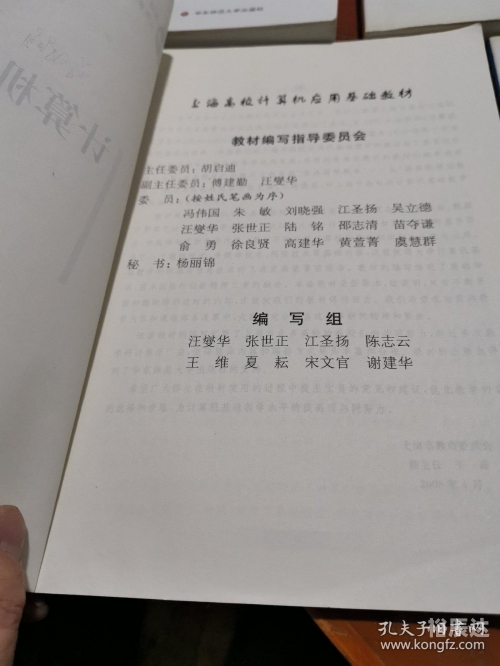 华东师范大学出版社
上海高校计算机应用基础教材
教材编写指导委员会
主任委员：胡启迪
副主任委员：傅建勤 汪燮华
委 员：（按姓氏笔画为序）
冯伟国 朱 敏 刘晓强 江圣扬 吴立德
汪燮华 张世正 陆 铭 邵志清 苗夺谦
俞 勇 徐良贤 高建华 黄萱菁 虞慧群
秘 书：杨丽锦
编 写 组
汪燮华 张世正 江圣扬 陈志云
王 维 夏 耘 宋文官 谢建华
计算机
孔夫子旧书网
www.kongfz.com